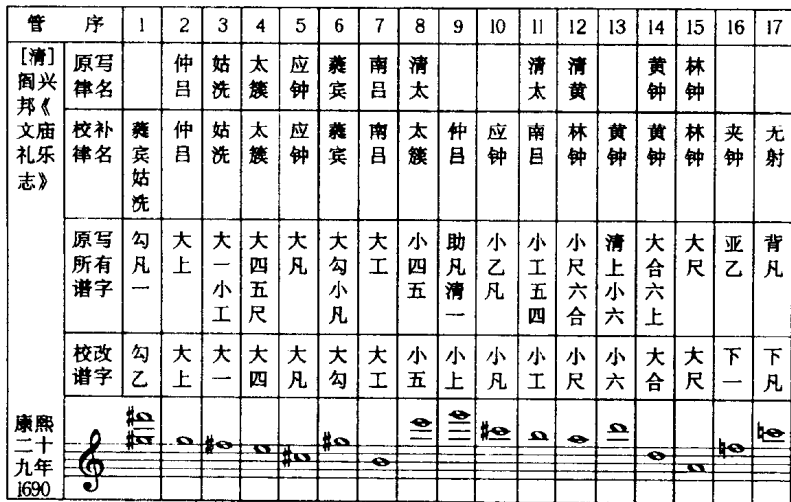 管 序 1 2 3 4 5 6 7 8 9 10 11 12 13 14 15 16 17
[清]阎兴邦《文庙礼乐志》
原写律名 仲吕 姑洗 太簇 应钟 蕤宾 南吕 清太 清太 清黄 黄钟 林钟
校补律名 蕤宾姑洗 仲吕 姑洗 太簇 应钟 蕤宾 南吕 太簇 仲吕 应钟 南吕 林钟 黄钟 黄钟 林钟 夹钟 无射
原写所有谱字 勾凡一 大上 大一小工 大四五尺 大凡 大勾小凡 大工 小四五 助凡清一 小乙凡 小工五四 小尺六合 清上小六 大合六上 大尺 亚乙 背凡
校改谱字 勾乙 大上 大一 大四 大凡 大勾 大工 小五 小上 小凡 小工 小尺 小六 大合 大尺 下一 下凡
康熙二十九年1690